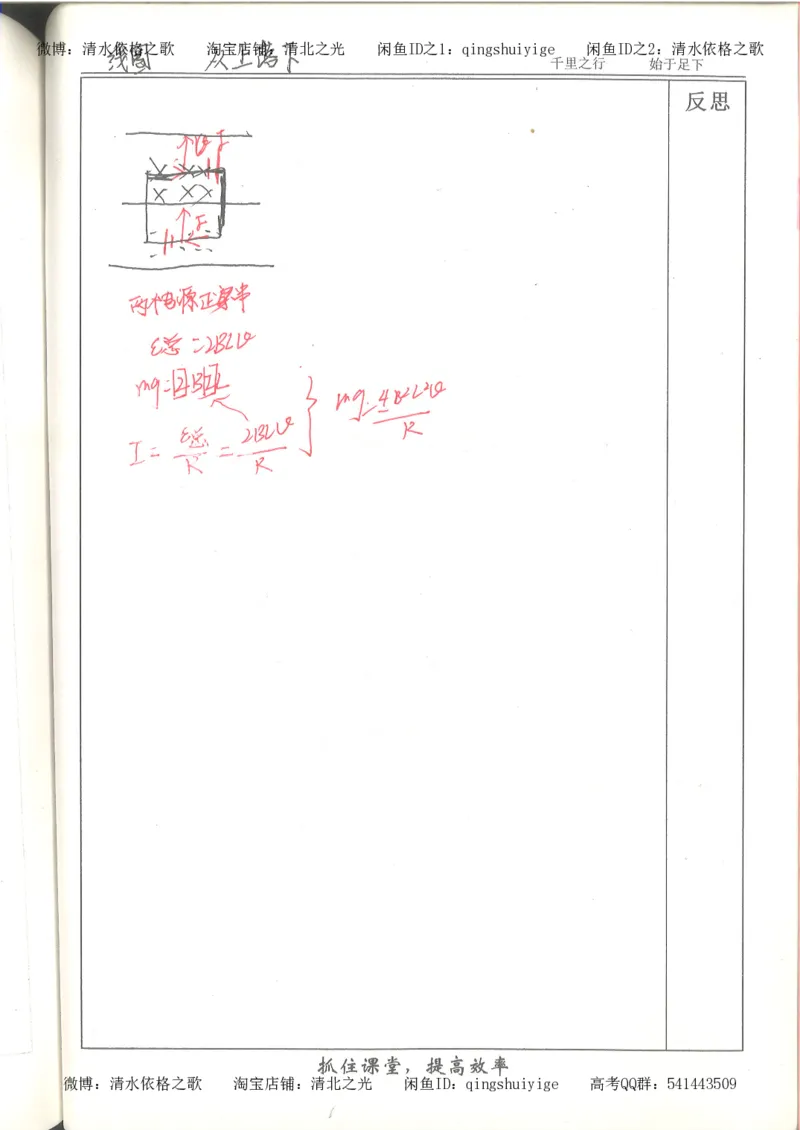 微博：清水依格之歌 淘宝店铺：清北之光 闲鱼ID之1：qingshuiyige 闲鱼ID之2：清水依格之歌
线圈 从上落下
千里之行 始于足下
反思
F
× × ×
× × ×
F
两个电源正串
ε总=2BLv
mg=2BIL
I=ε总/R=2BLv/R } mg=4B²L²v/R
抓住课堂，提高效率
微博：清水依格之歌 淘宝店铺：清北之光 闲鱼ID：qingshuiyige 高考QQ群：541443509